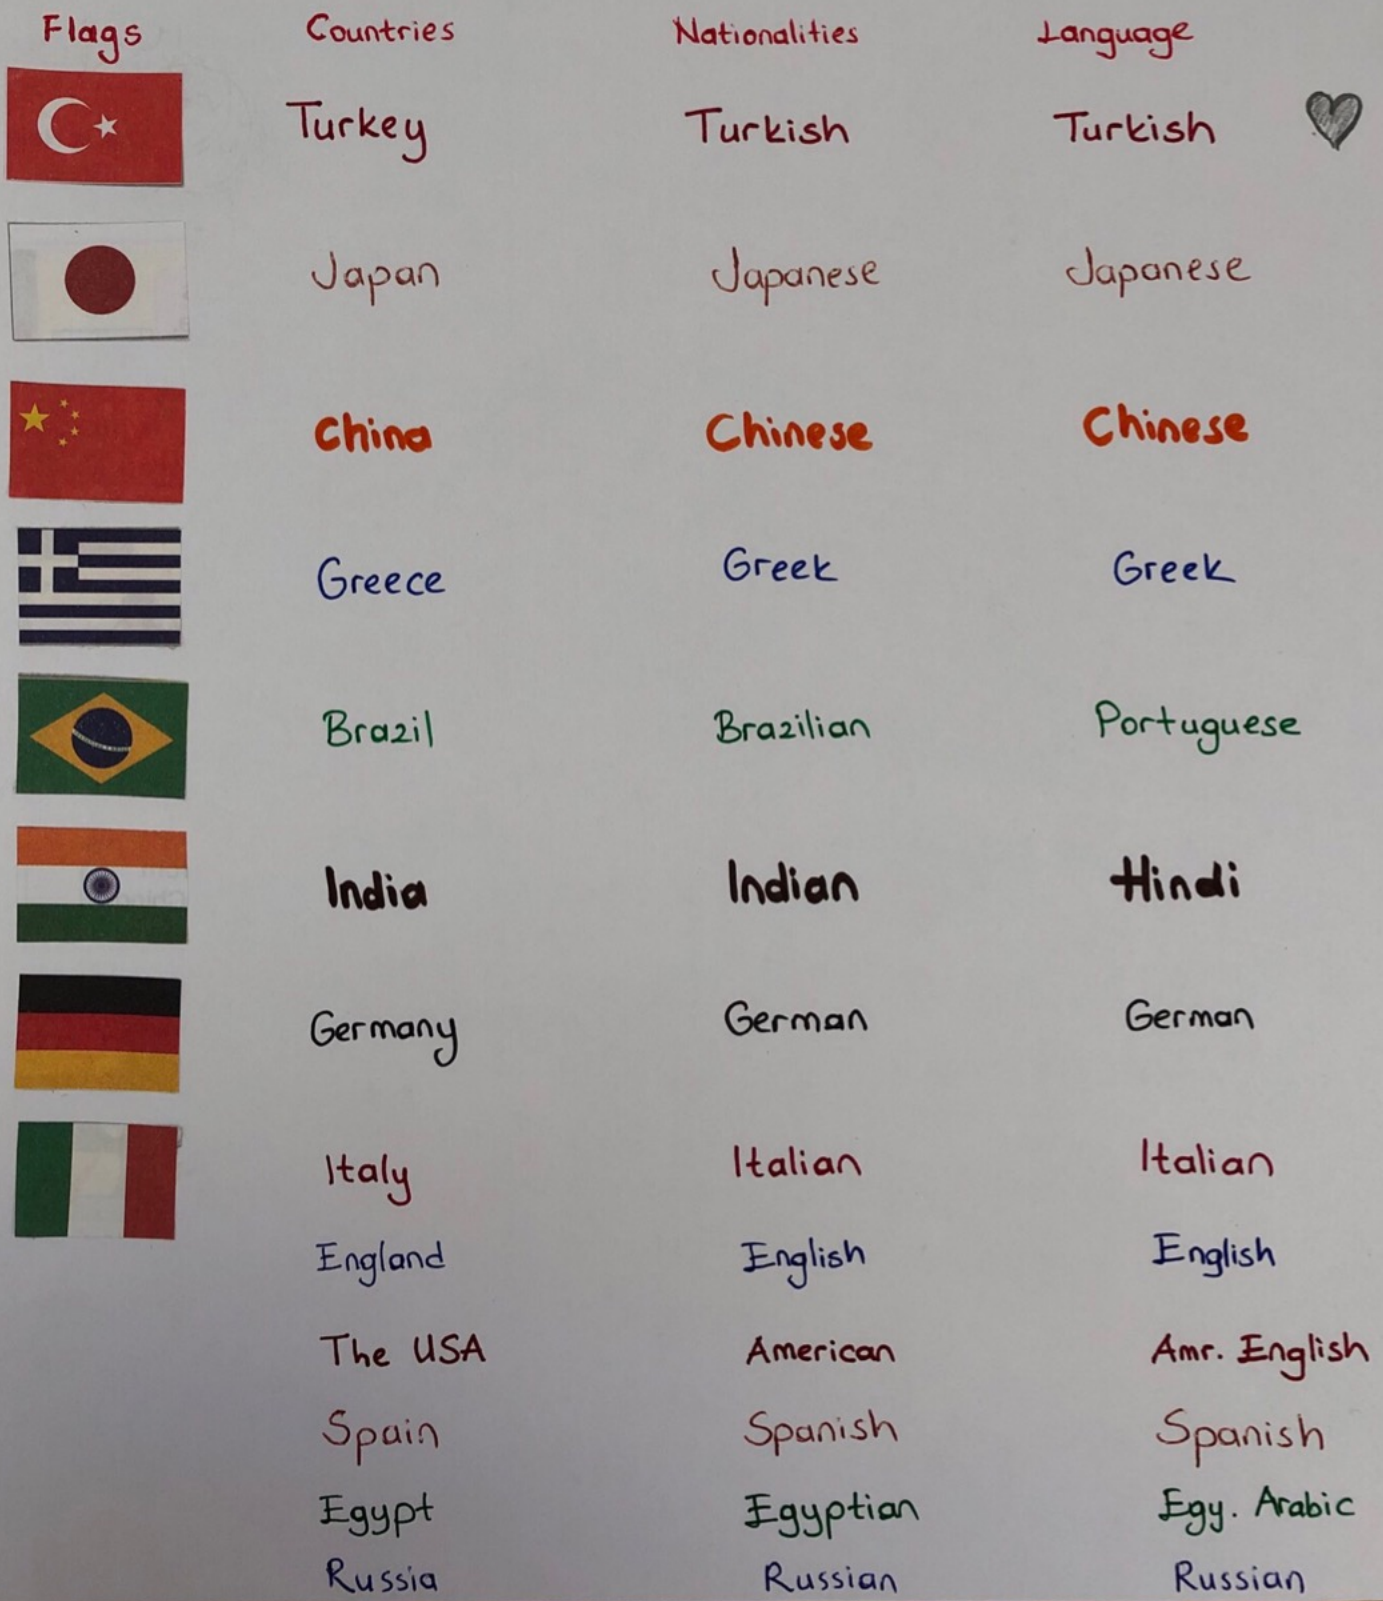 Flags Countries Nationalities Language
Turkey Turkish Turkish
Japan Japanese Japanese
China Chinese Chinese
Greece Greek Greek
Brazil Brazilian Portuguese
India Indian Hindi
Germany German German
Italy Italian Italian
England English English
The USA American Amr. English
Spain Spanish Spanish
Egypt Egyptian Egy. Arabic
Russia Russian Russian